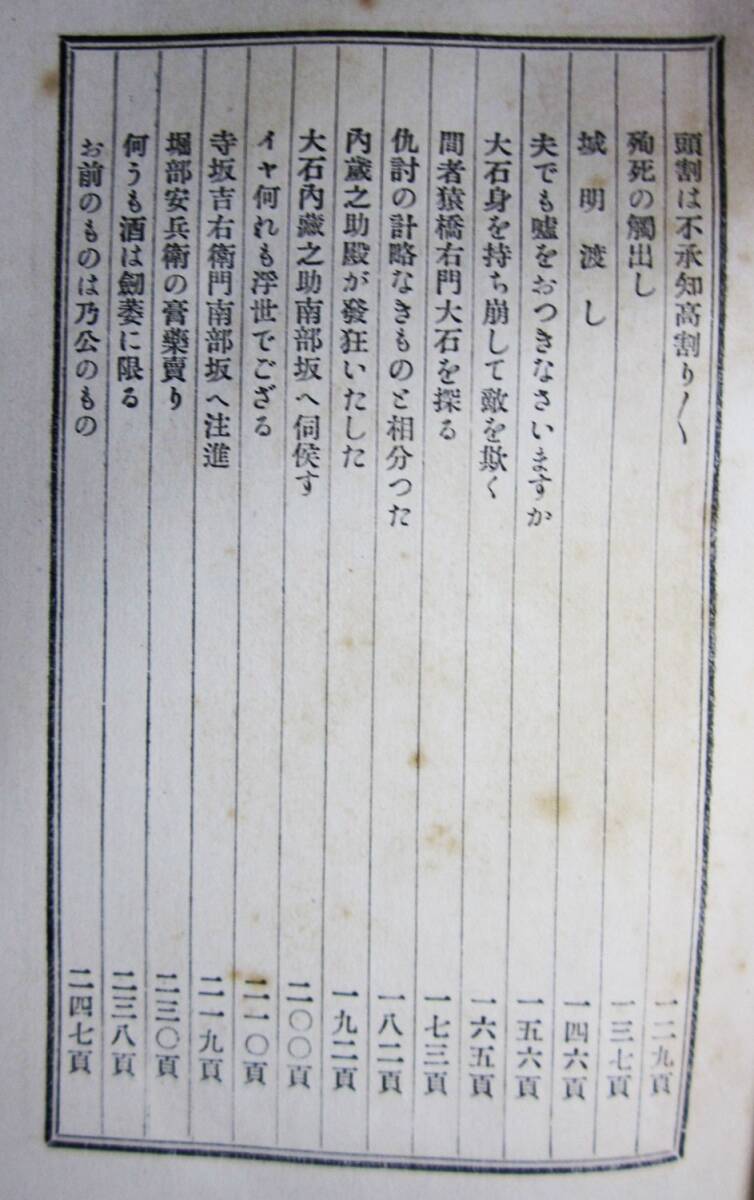 頭割は不承知高割り〳〵 一二九頁
殉死の觸出し 一三七頁
城明渡し 一四六頁
夫でも嘘をおつきなさいますか 一五六頁
大石身を持ち崩して敵を欺く 一六五頁
間者猿橋右門大石を探る 一七三頁
仇討の計略なきものと相分つた 一八二頁
內藏之助殿が發狂いたした 一九二頁
大石內藏之助南部坂へ伺侯す 二〇〇頁
イヤ何れも浮世でござる 二一〇頁
寺坂吉右衞門南部坂へ注進 二一九頁
堀部安兵衞の膏藥賣り 二三〇頁
何うも酒は劒菱に限る 二三八頁
お前のものは乃公のもの 二四七頁